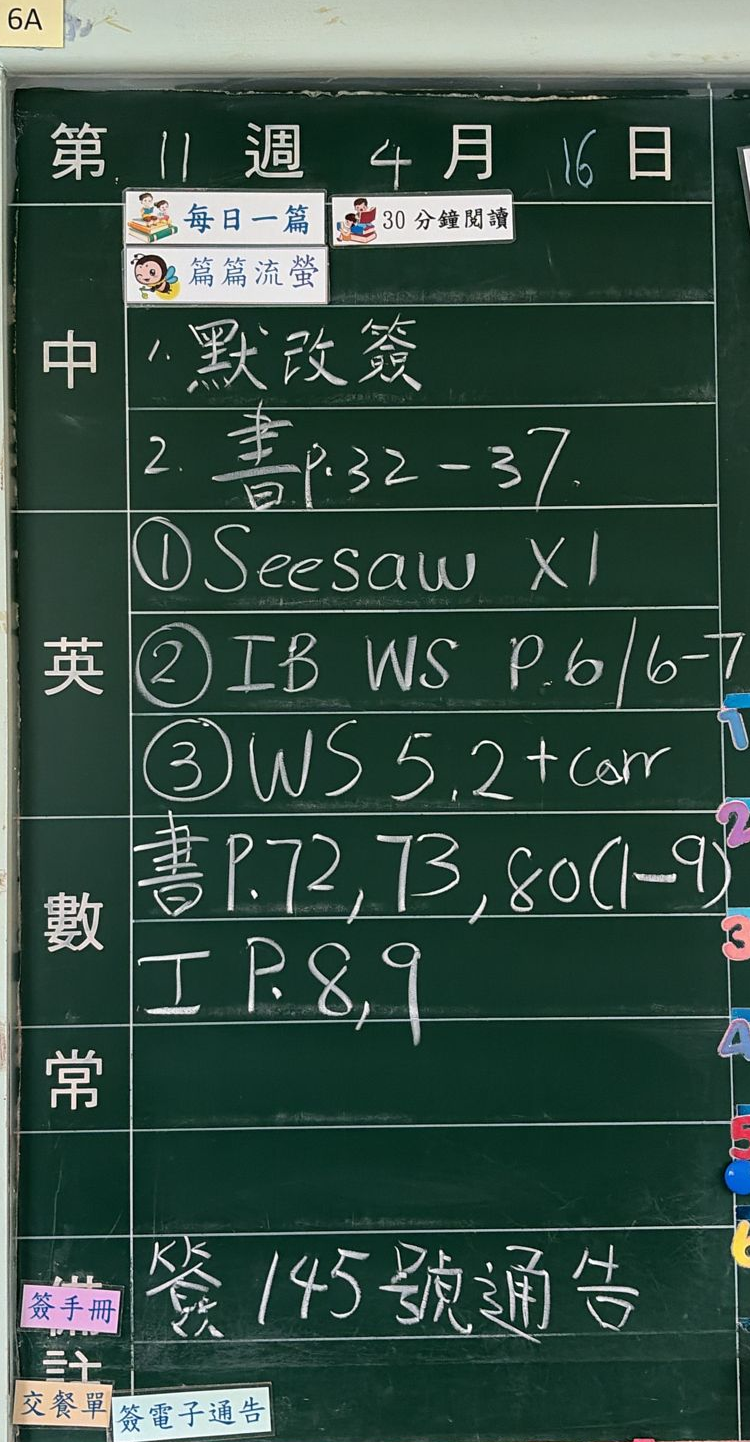 6A
第 11 週 4 月 16 日
每日一篇 30分鐘閱讀
篇篇流螢
中
1. 默改簽
2. 書p.32-37.
英
① Seesaw X1
② IB WS P.6/6-7
③ WS 5.2+corr
數
書P.72,73,80(1-9)
工 P.8,9
常
備註
簽 145號通告
簽手冊
交餐單
簽電子通告
1
2
3
4
5
6